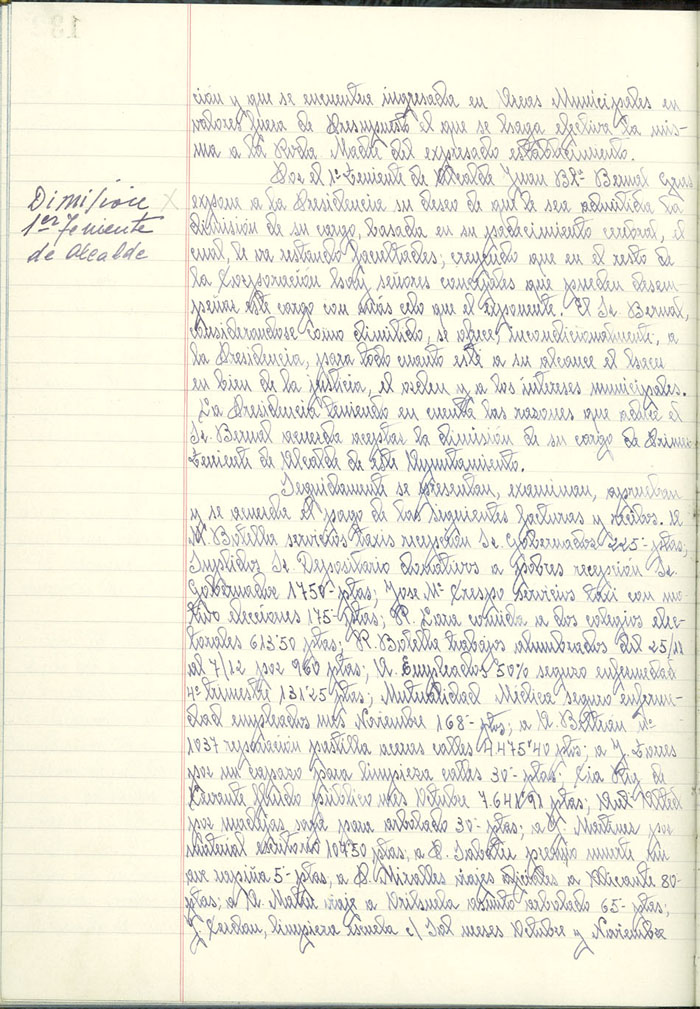 Dimisión
1er Teniente
de Alcalde
ción y que se encuentra ingresada en Arcas Municipales en
valores fuera de Presupuesto el que se haga efectiva la mis-
ma a la Rvda Madre del expresado establecimiento.
Por el 1º Teniente de Alcalde Juan Btª Bernal Gras
expone a la Presidencia su deseo de que le sea admitida la
dimisión de su cargo, basada en su padecimiento cerebral, el
cual, le va restando facultades; creyendo que en el resto de
la Corporación hay señores concejales que pueden desem-
peñar este cargo con más celo que el exponente. El Sr. Bernal,
considerandose como dimitido, se ofrece, incondicionalmente, a
la Presidencia, para todo cuanto esté a su alcance el hacer
en bien de la justicia, el orden y a los intereses municipales.
La Presidencia teniendo en cuenta las razones que aduce el
Sr. Bernal acuerda aceptar la dimisión de su cargo de Primer
Teniente de Alcalde de este Ayuntamiento.
Seguidamente se presentan, examinan, aprueban
y se acuerda el pago de las siguientes facturas y recibos. A
Mª Botella servicios taxis recepción Sr. Gobernador 225'- ptas;
Suplidos Sr. Depositario donativos a pobres recepción Sr.
Gobernador 1750'- ptas; Jose Mª Crespo servicios taxi con mo-
tivo elecciones 175'- ptas; R. Lara comida a dos colegios elec-
torales 613'50 ptas; R. Botella trabajos alumbrados del 25/11
al 7/12 por 960 ptas; A. Empleados 50% seguro enfermedad
4º trimestre 131'25 ptas; Mutualidad Médica seguro enferme-
dad empleados mes Noviembre 168'- ptas; a A. Beltran nº
1037 reparación pastilla aceras calles 4475'40 ptas; a J. Torres
por un capazo para limpieza calles 30'- ptas; Cia Rieg de
Levante fluido público mes Octubre 7.641'91 ptas;
por madejas soga para arbolado 30'- ptas; a J. Martinez por
material escritorio 104'50 ptas, a R. Sabater premio muerte un
ave rapiña 5'- ptas, a R. Miralles viajes oficiales a Alicante 80'-
ptas; a A. Mator viaje a Orihuela asunto arbolado 65'- ptas;
J limpieza Escuela c/ Sol meses Octubre y Noviembre